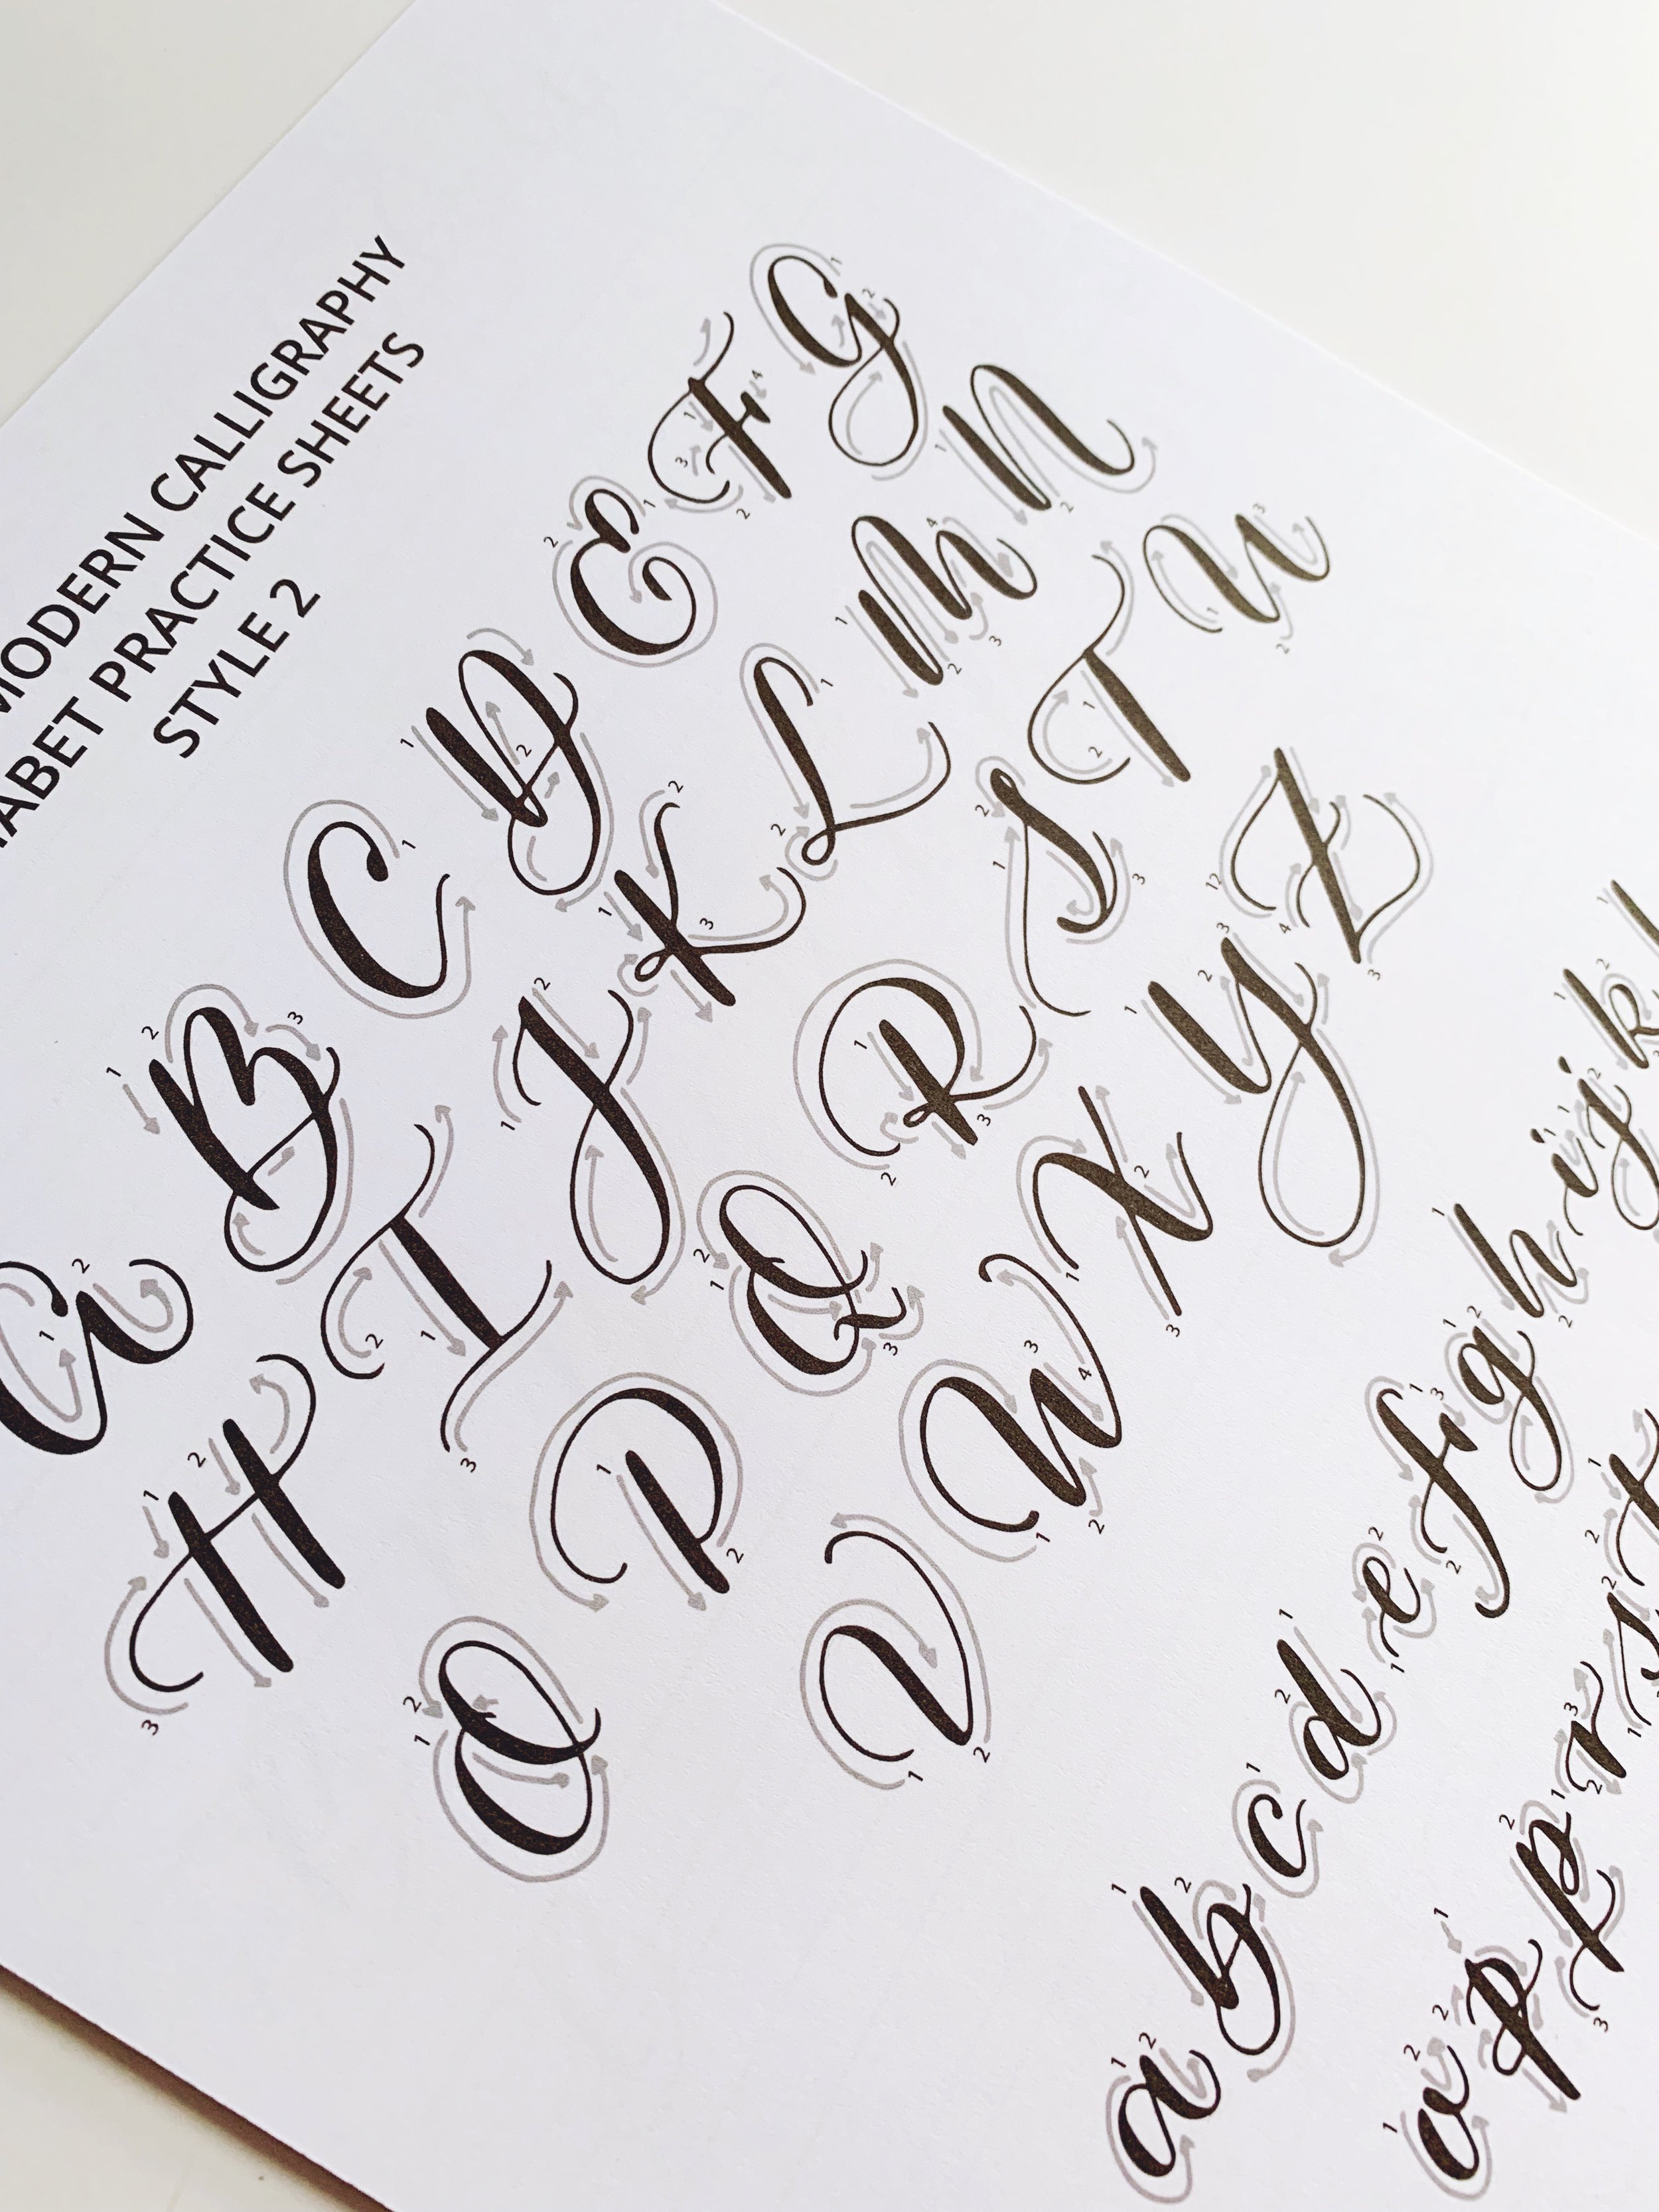 MODERN CALLIGRAPHY
ABET PRACTICE SHEETS
STYLE 2
A B C D E F G
H I J K L M N
O P Q R S T U
V W X Y Z
a b c d e f g h i j k
p r s t